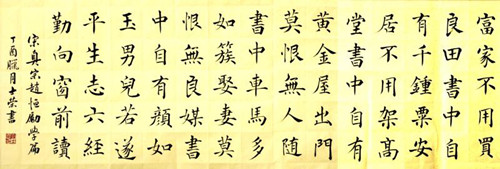 富家不用買
良田書中自
有千鍾粟安
居不用架高
堂書中自有
黃金屋出門
莫恨無人隨
書中車馬多
如簇娶妻莫
恨無良媒書
中自有顏如
玉男兒若遂
平生志六經
勤向窗前讀
宋真宗趙恒勵學篇
丁酉臘月士榮書